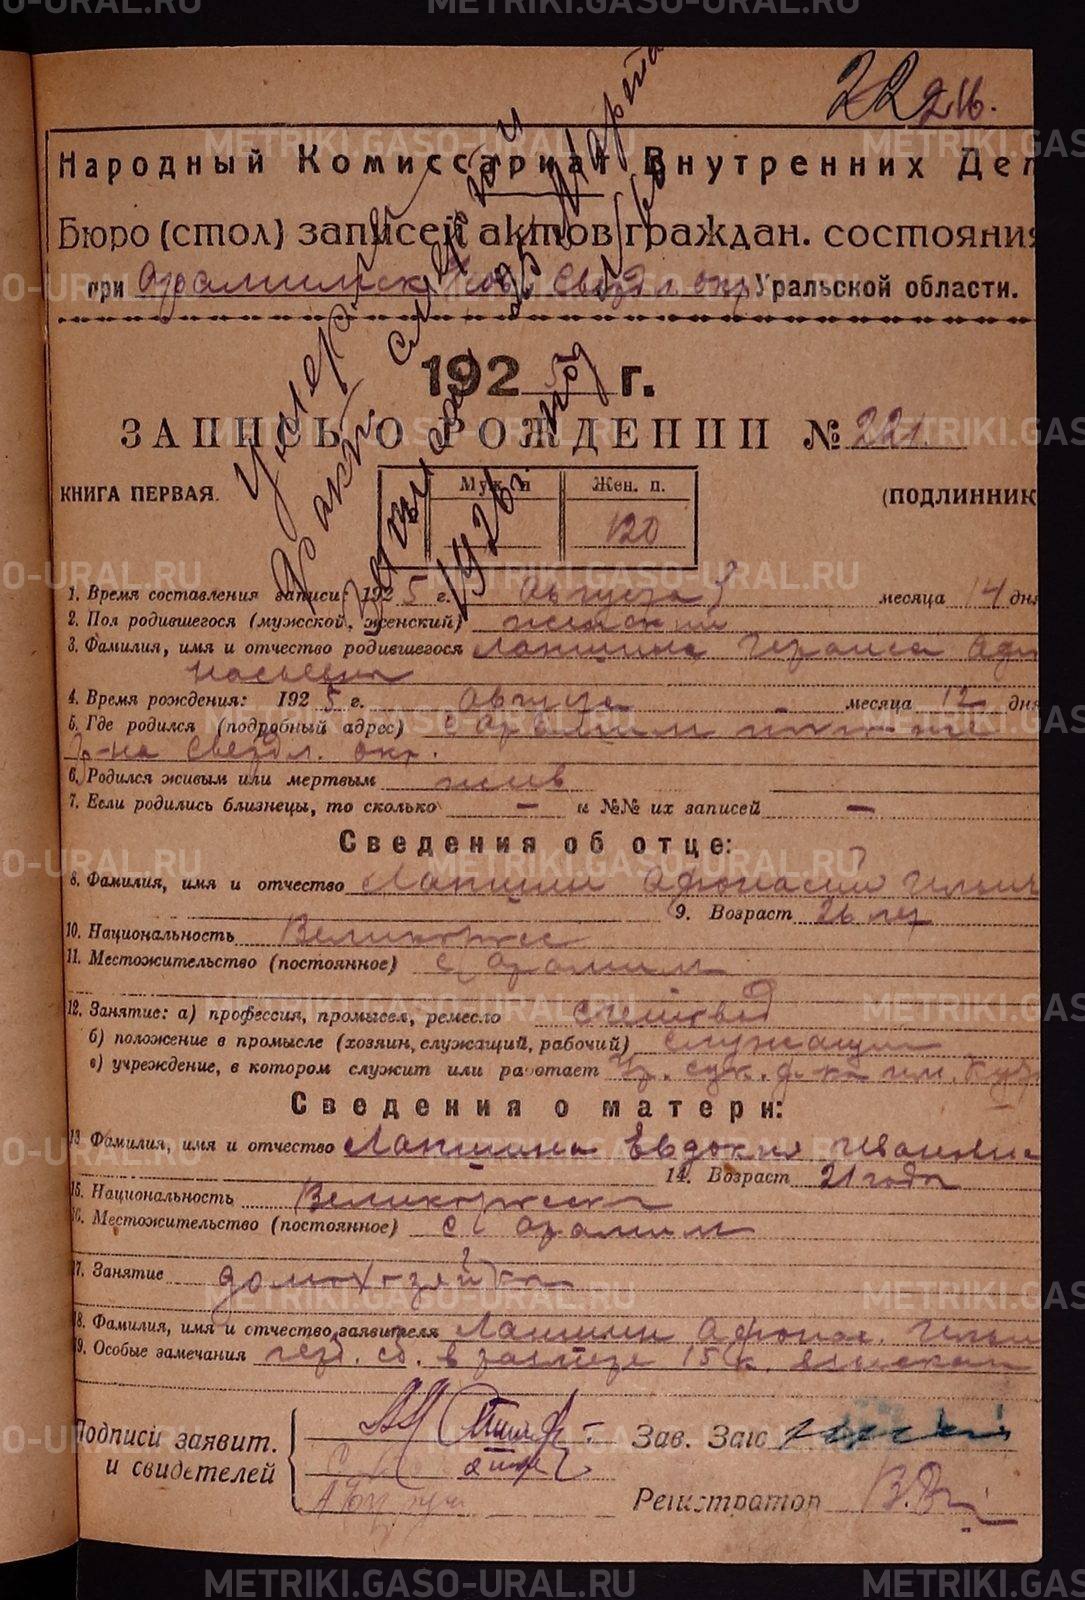 METRIKI.GASO-URAL.RU
22 216.
Народный Комиссариат Внутренних Дел
Бюро (стол) записей актов граждан. состояния
при Арамильск. Свердл. окр. Уральской области.
Умер
акт о смерти
марта
1926 г.
1925 г.
ЗАПИСЬ О РОЖДЕНИИ № 221.
КНИГА ПЕРВАЯ.
Муж. п. Жен. п.
(ПОДЛИННИК
120
1. Время составления записи: 1925 г. Августа месяца 14 дня
2. Пол родившегося (мужской, женский) женский
3. Фамилия, имя и отчество родившегося Лапшина Ираиса Афо
насьевна
4. Время рождения: 1925 г. Августа месяца 12 дня
5. Где родился (подробный адрес) с Арамил
р-на Свердл. окр.
6. Родился живым или мертвым жив
7. Если родились близнецы, то сколько — и №№ их записей —
Сведения об отце:
8. Фамилия, имя и отчество Лапшин Афонасий Ильич
9. Возраст 26 лет
10. Национальность Великоросс
11. Местожительство (постоянное) с Арамил
12. Занятие: а) профессия, промысел, ремесло счетовод
б) положение в промысле (хозяин, служащий, рабочий) служащий
в) учреждение, в котором служит или работает Ар. сук. ф-ка им.
Сведения о матери:
13. Фамилия, имя и отчество Лапшина Евдокия Ивановна
14. Возраст 21 года
15. Национальность Великоросска
16. Местожительство (постоянное) с Арамил
17. Занятие домохозяйка
18. Фамилия, имя и отчество заявителя Лапшин Афонас. Ильич
19. Особые замечания герб. сб. в размере 15 к. взыскан
Подписи заявит.
и свидетелей
Зав. Загс
Регистратор